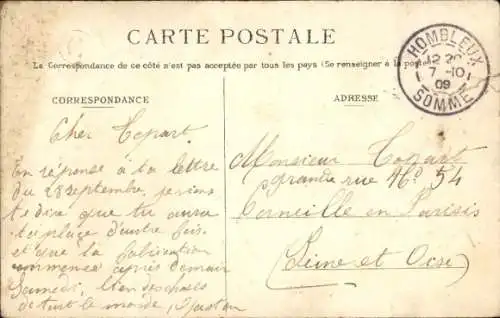 CARTE POSTALE
La Correspondance de ce côté n'est pas acceptée par tous les pays (Se renseigner à la poste)
HOMBLEUX
7 -10
09
SOMME
CORRESPONDANCE
ADRESSE
Cher
En réponse à ta lettre
du 28 septembre, je viens
te dire que tu auras
ta place d'autre fois
et que la fabrication
commence après demain
Samedi, bien des choses
de tout le monde,
Monsieur
grande rue No 54
Corneille en Parisis
(Seine et Oise)